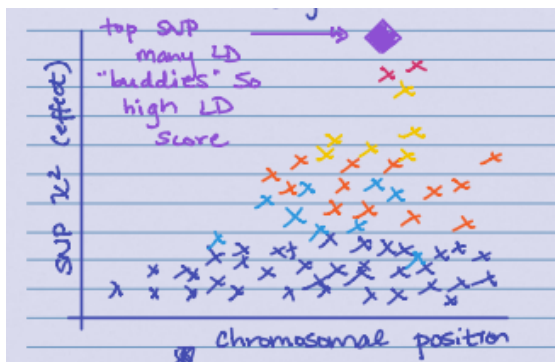 top SNP
many LD
"buddies" so
high LD
score
SNP χ² (effect)
chromosomal position